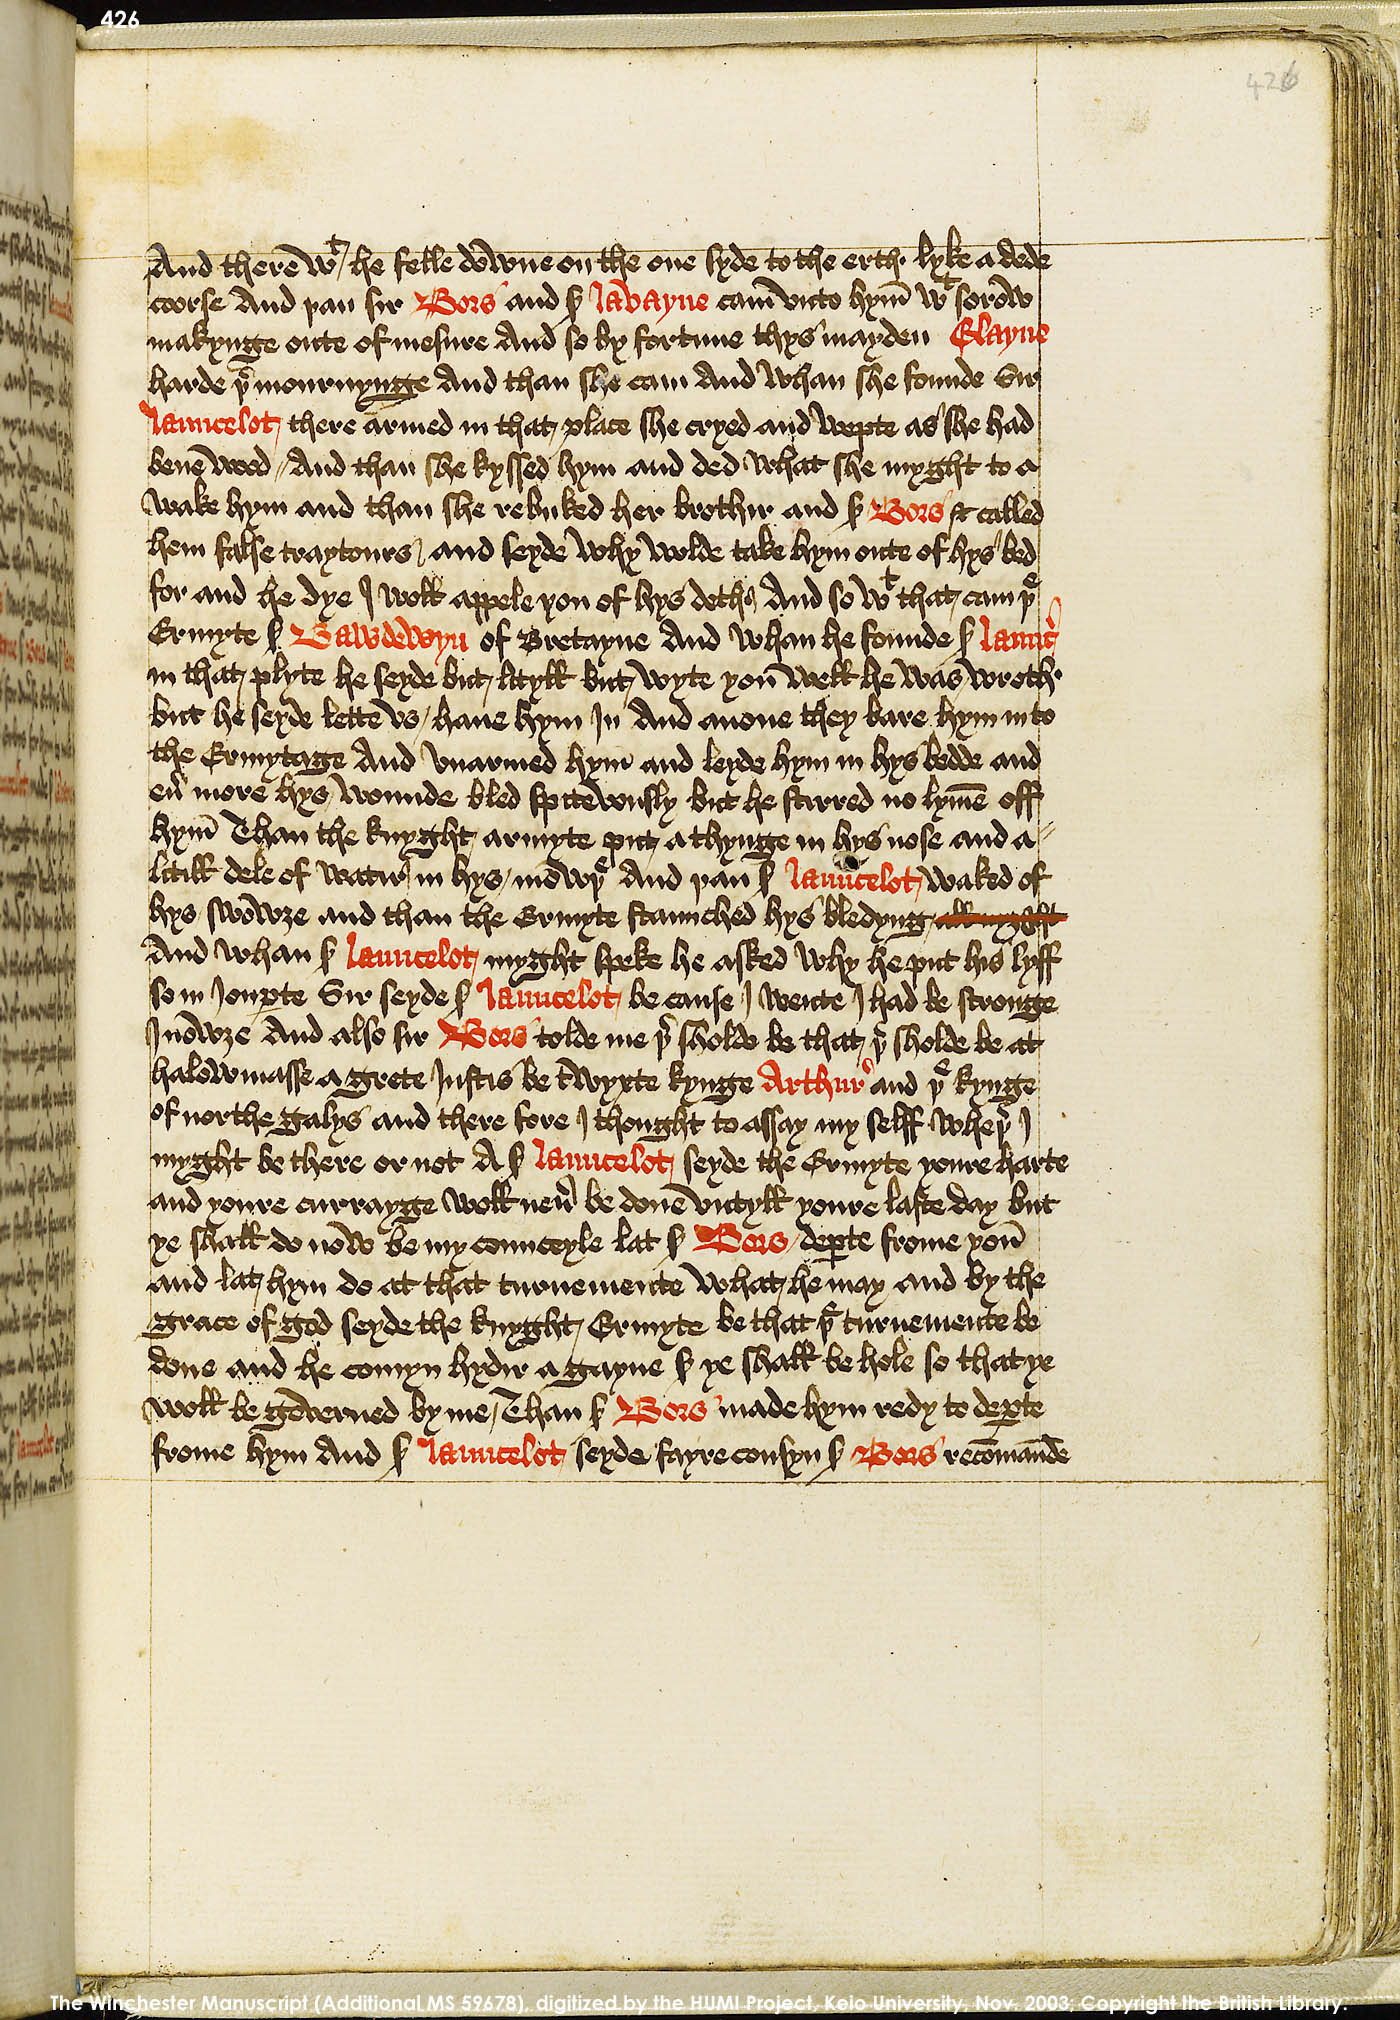 426
426
And there wͭ he felle downe on the one syde to the erth lyke a dede
coorse And þan sir Bors and ẜ lavayne cam̄ vnto hym̄ wͭ sorow
makynge oute of mesure And so by fortune thys mayden Elayne
harde þͤ mournynge And than she cam And whan she founde Sir
launcelot there armed in that place she cryed and wepte as she had
bene wood And than she kyssed hym and ded what she myght to a
wake hym and than she rebuked her brothir and ẜ Bors & called
hem false traytours and seyde why wolde take hym oute of hys bed
for and he dye I woll appele you of hys deth And so wͭ that cam þͤ
Ermyte ẜ Bawdewyn of Bretayne And whan he founde ẜ launc̉
in that plyte he seyde but lityll but wyte you well he was wroth
but he seyde lette vs haue hym In And anone they bare hym in to
the Ermytage And vnarmed hym and leyde hym in hys bedde and
eủ more hys wounde bled spitewusly but he stirred no lyme off
hym̄ Than the knyght armyte put a thynge in hys nose and a
litill dele of watir in hys mowþͤ And þan ẜ launcelot waked of
hys swowze and than the Ermyte staunched hys bledyng
And whan ẜ launcelot myght speke he asked why he put his lyff
so in Joup̱te Sir seyde ẜ launcelot be cause I wente I had be stronge
Inowze And also sir Bors tolde me þ̉ sholde be that þ̉ sholde be at
halowmasse a grete Justis be twyxte kynge Arthur and þͤ kynge
of northe galys and there fore I thought to assay my selff wheþ̉ I
myght be there or not A ẜ launcelot seyde the Ermyte youre harte
and youre currayge woll neủ be done vntyll youre laste day but
ye shall do now be my counceyle lat ẜ Bors dep̱te frome you
and lat hym do at that turnemente what he may and by the
grace of god seyde the knyght Ermyte be that þͤ turnemente be
done and he comyn hydir a gayne ẜ ye shall be hole so that ye
woll be governed by me Than ẜ Bors made hym redy to dep̱te
frome hym And ẜ launcelot seyde fayre cousyn ẜ Bors recōmaunde
The Winchester Manuscript (Additional MS 59678), digitized by the HUMI Project, Keio University, Nov. 2003; Copyright the British Library.